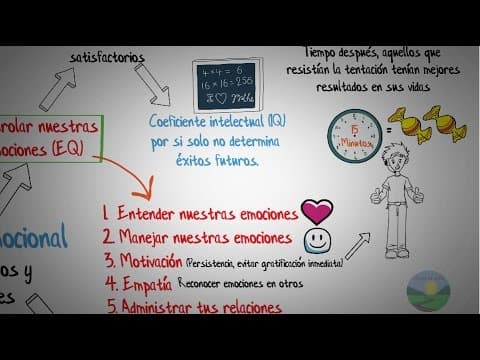 satisfactorios
Tiempo después, aquellos que
resistían la tentación tenían mejores
resultados en sus vidas
4 x 4 = 6
16 x 16 = 256
I ♡ Maths
Coeficiente intelectual (IQ)
por si solo no determina
éxitos futuros.
15
Minutos
=
rolar nuestras
ociones (E.Q)
1. Entender nuestras emociones
2. Manejar nuestras emociones
3. Motivación (Persistencia, evitar gratificación inmediata)
4. Empatía Reconocer emociones en otros
5. Administrar tus relaciones
ocional
os y
es